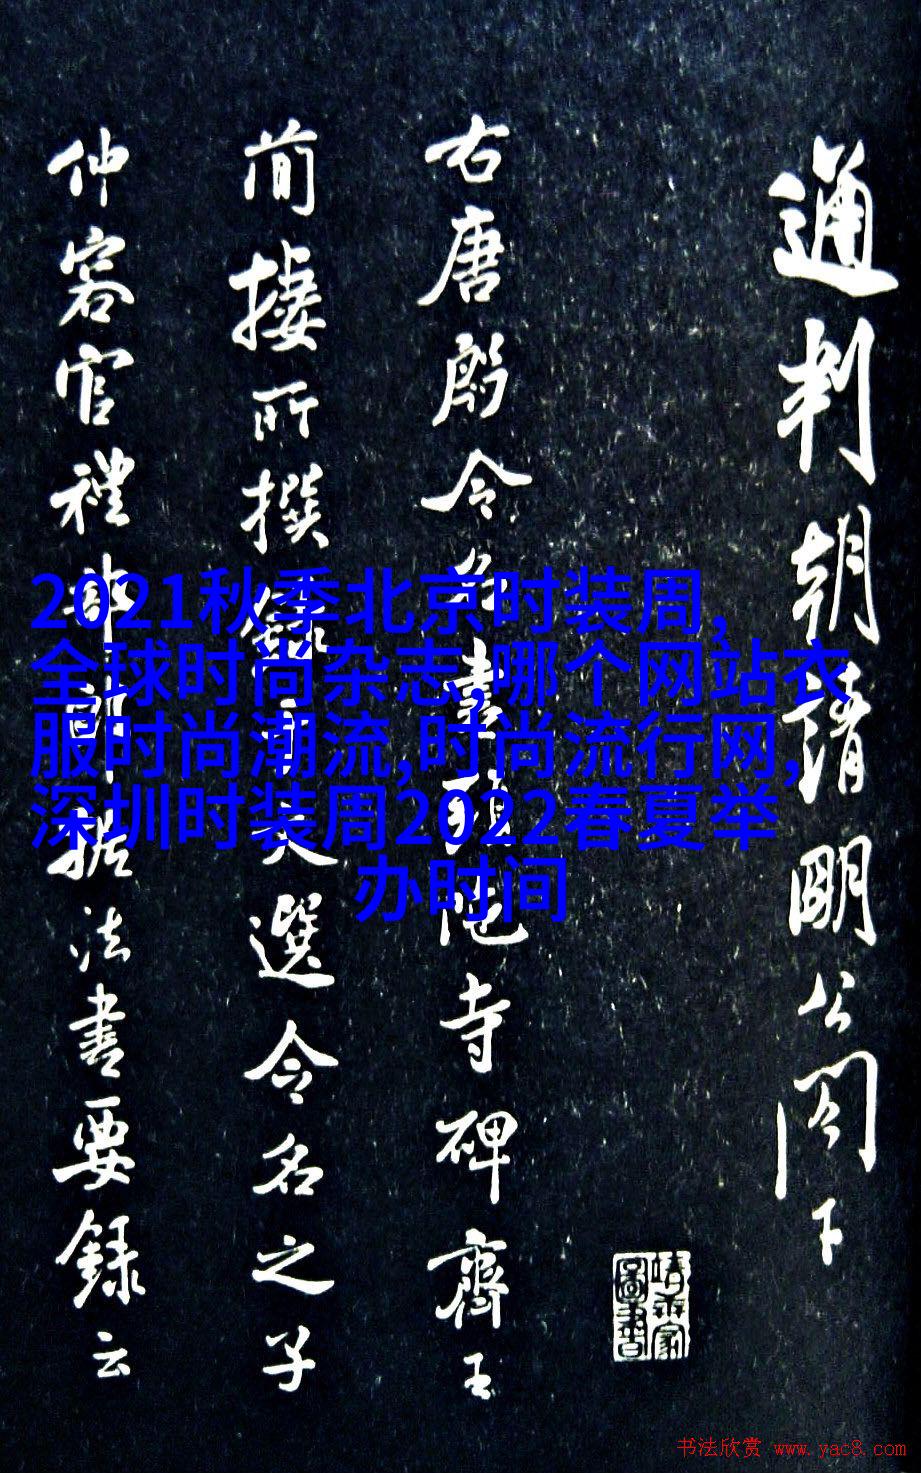 通判朝請明公閤下
右唐殷令名書頭陁寺碑齊王
簡棲所撰錄于文選令名之子
仲容官禮部郎據法書要録云
2021秋季北京时装周,
全球时尚杂志,哪个网站衣
服时尚潮流,时尚流行网,
深圳时装周2022春夏举
办时间
书法欣赏 www.yac8.com